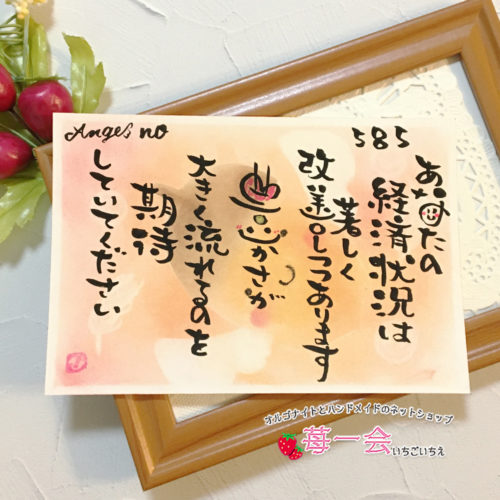 Anges no
585
あなたの
経済状況は
著しく
改善しつつあります
豊かさが
大きく流れてるのを
期待
していてください
オルゴナイトとハンドメイドのネットショップ
苺一会 いちごいちえ